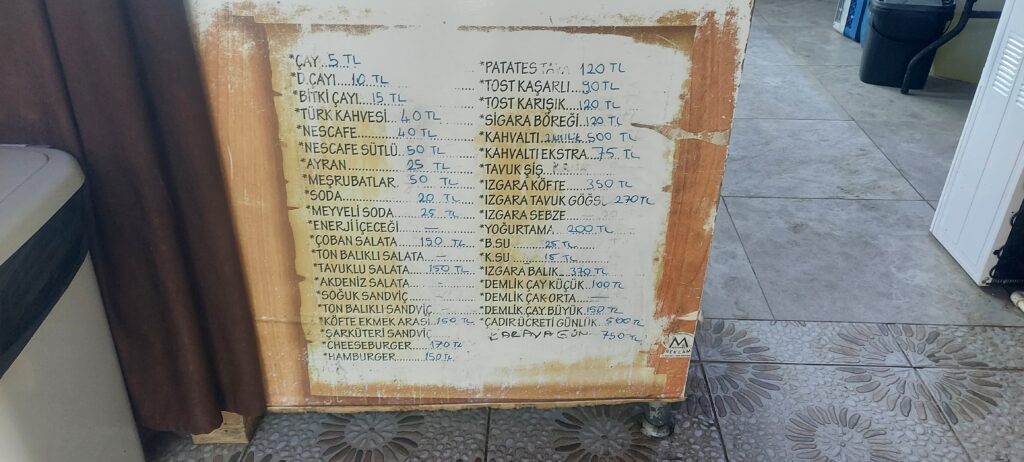 *ÇAY 5 TL
*D.ÇAYI....10 TL
*BİTKİ ÇAYI...15 TL
*TÜRK KAHVESİ 40 TL
*NESCAFE............40 TL
*NESCAFE SÜTLÜ 50 TL
*AYRAN.........25 TL
*MEŞRUBATLAR 50 TL
*SODA............20 TL
*MEYVELİ SODA....25 TL
*ENERJİ İÇECEĞİ —
*ÇOBAN SALATA 150 TL
*TON BALIKLI SALATA —
*TAVUKLU SALATA 150 TL
*AKDENİZ SALATA —
*SOĞUK SANDVİÇ
*TON BALIKLI SANDVİÇ —
*KÖFTE EKMEK ARASI.150 TL
*ŞARKÜTERİ SANDVİÇ
*CHEESEBURGER....170 TL
*HAMBURGER........150 TL
*PATATES TAVA 120 TL
*TOST KAŞARLI 90 TL
*TOST KARIŞIK...120 TL
*SİGARA BÖREĞİ.120 TL
*KAHVALTI 500 TL
*KAHVALTI EKSTRA.75 TL
*TAVUK ŞİŞ
*IZGARA KÖFTE 350 TL
*IZGARA TAVUK GÖĞSÜ 270 TL
*IZGARA SEBZE
*YOĞURTAMA 200 TL
*B.SU ....25 TL
*K.SU ....15 TL
*IZGARA BALIK..370 TL
*DEMLİK ÇAY KÜÇÜK 100 TL
*DEMLİK ÇAK ORTA —
*DEMLİK ÇAY BÜYÜK 150 TL
*ÇADIR ÜCRETİ GÜNLİK 500 TL
KARAVAN GÜN 750 TL
M
REKLAM